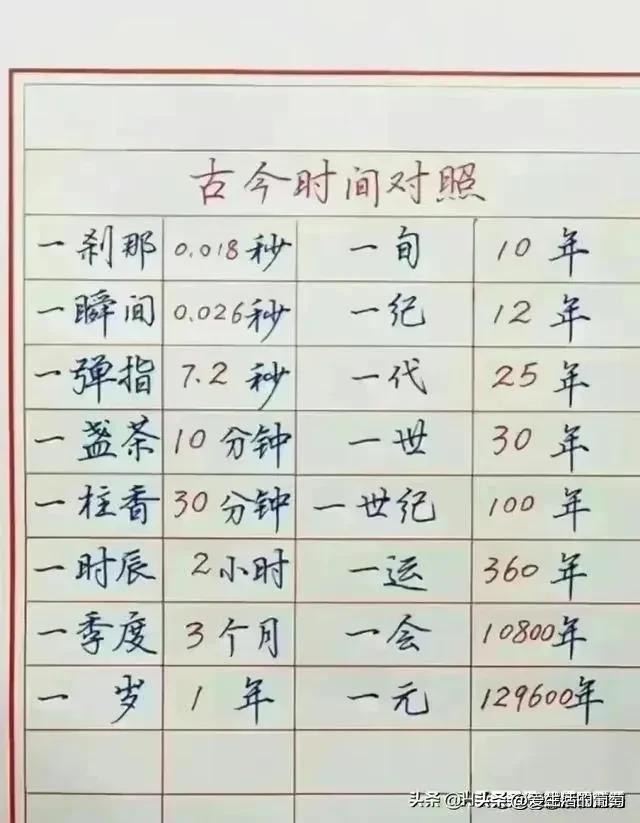 古今时间对照
一刹那 0.018秒 一旬 10年
一瞬间 0.026秒 一纪 12年
一弹指 7.2秒 一代 25年
一盏茶 10分钟 一世 30年
一柱香 30分钟 一世纪 100年
一时辰 2小时 一运 360年
一季度 3个月 一会 10800年
一岁 1年 一元 129600年
头条 @爱生活的葡萄